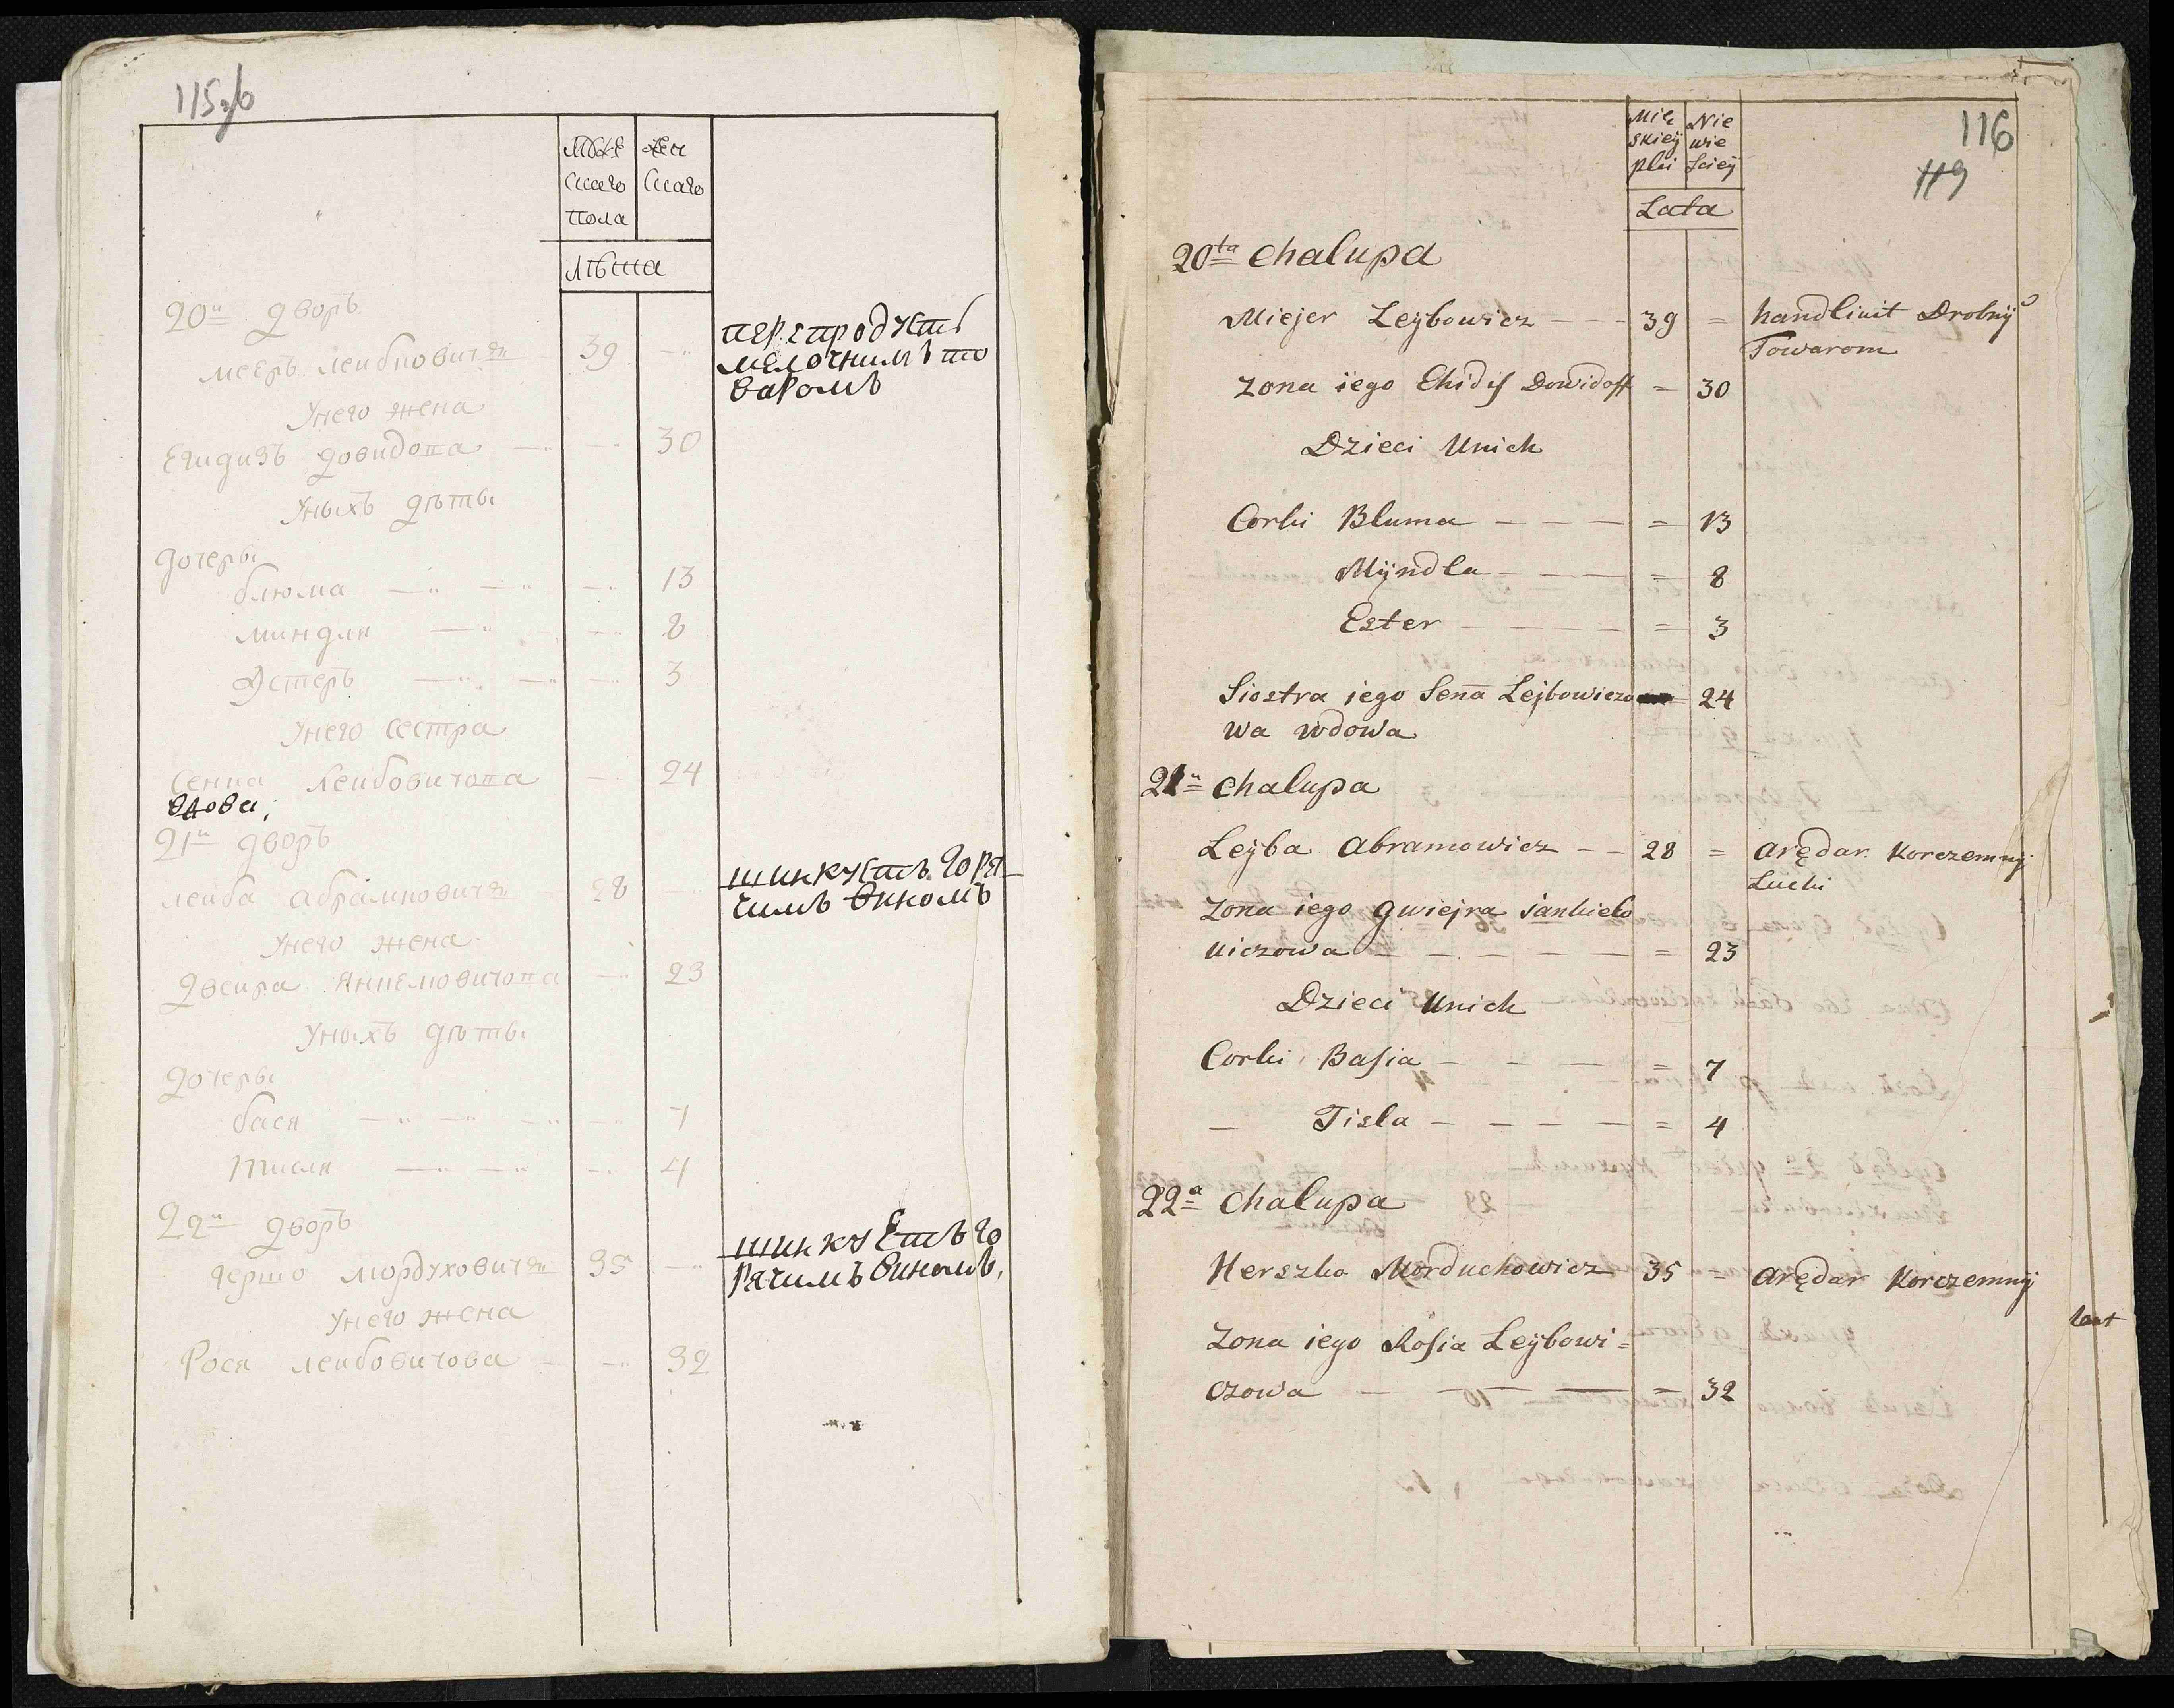 115об
Муже Жен
скаго скаго
пола
Лѣта
20й Дворъ
Мееръ Лейбовичъ 39 —
перепродуетъ
мелочнимъ то
варомъ
Унего жена
Егидизъ Довидова — — 30
Уныхъ дѣты
Дочеры
блюма — — — 13
миндля — — 8
Эстеръ — — — 3
Унего сестра
Сенна Лейбовичова — 24
вдова;
21й Дворъ
Лейба Абрамовичъ 28 —
шинкуетъ горя
чимъ виномъ
Унего жена
Двейра Янкелювичова — 23
Уныхъ дѣты
Дочеры
бася — — — — 7
тисля — — — 4
22й Дворъ
Гершо Мордуховичъ 35 —
шинкуетъ го
рячимъ виномъ,
Унего жена
Рося Лейбовичова — — 32
116
119
Męz Nie
skieÿ wie
płci sciey
Lata
20ta Chalupa
Miejer Leÿbowicz — — 39 = handliuit Drobnÿ
Towarom
Zona iego Ehidis Dowidoff = 30
Dzieci Unich
Corki Bluma — — — = 13
Mÿndla — — — = 8
Ester — — — = 3
Siostra iego Sena Lejbowiczo 24
wa wdowa
21a Chalupa
Leÿba Abramowicz — — 28 = arędar Korczemnÿ
Lucki
Zona iego Gwiejra Jankielo
wiczowa — — — — = 23
Dzieci Unich
Corki Basia — — — = 7
— Tisla — — — — = 4
22a Chalupa
Herszko Morduchowicz 35 = arędar Korczemnÿ
Zona iego Rosia Leÿbowi=
czowa — — — = 32